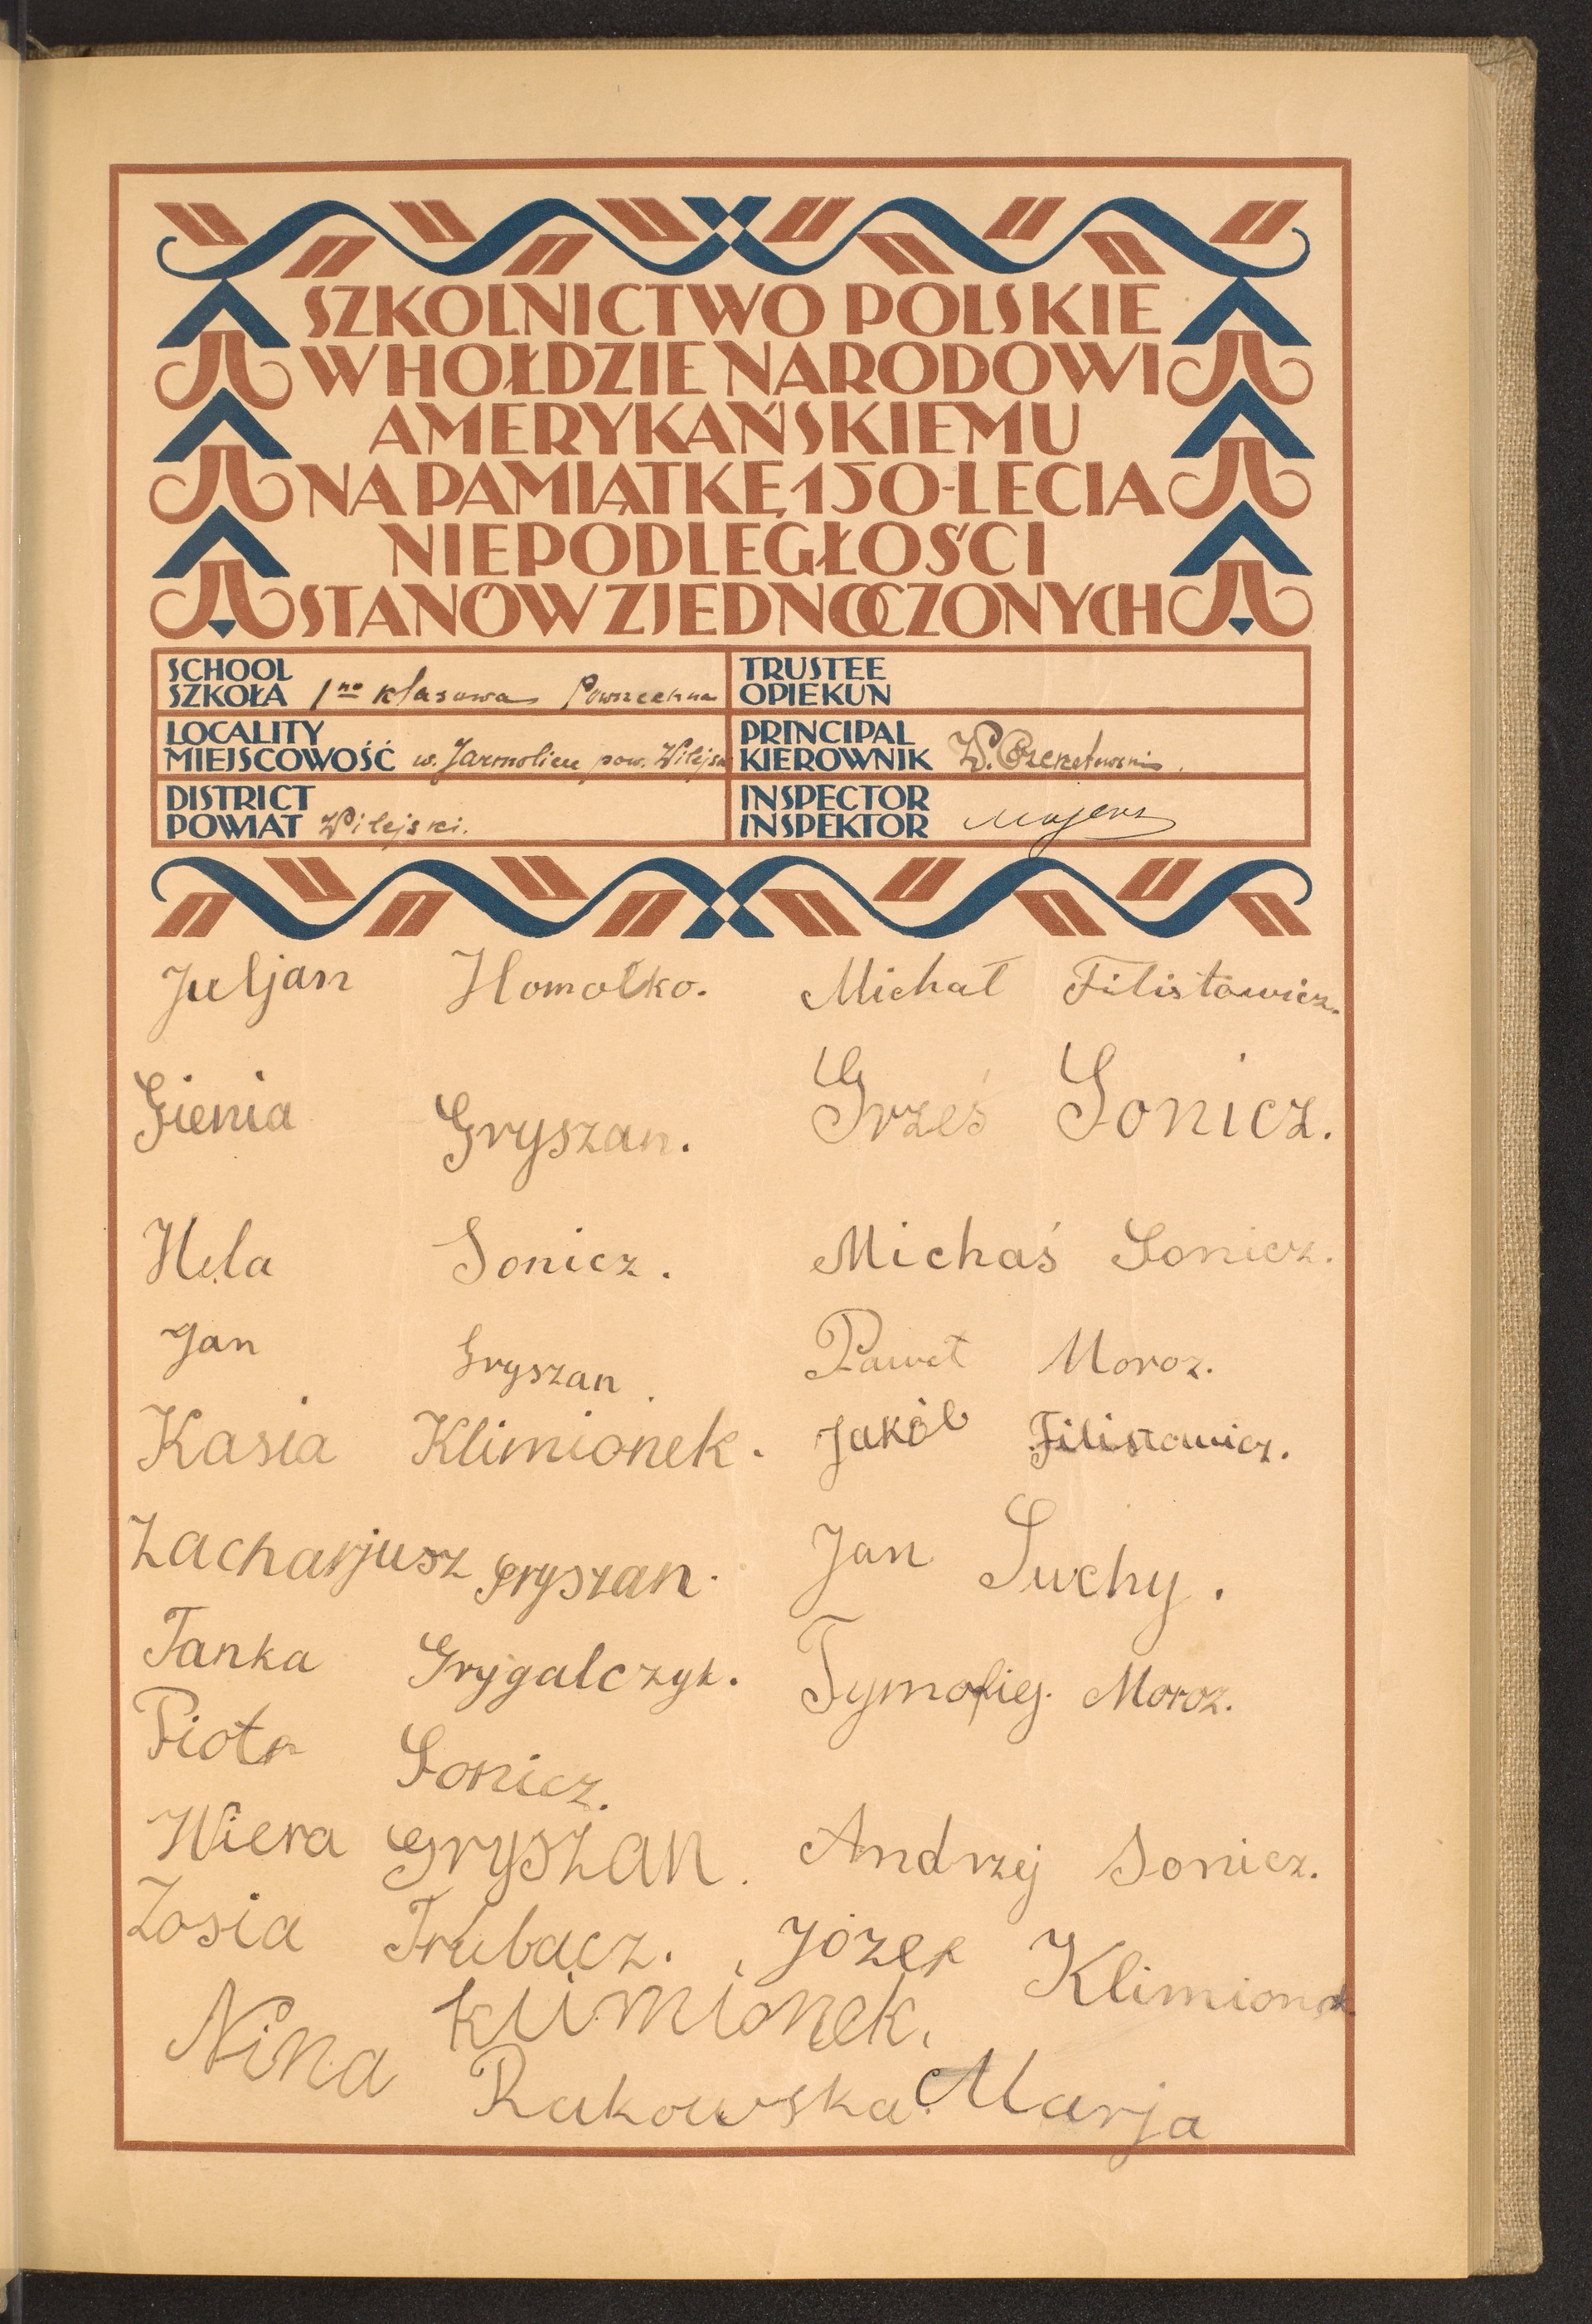 SZKOLNICTWO POLSKIE
W HOŁDZIE NARODOWI
AMERYKAŃSKIEMU
NA PAMIĄTKĘ 150-LECIA
NIEPODLEGŁOŚCI
STANÓW ZJEDNOCZONYCH
SCHOOL
SZKOŁA 1no klasowa Powszechna
TRUSTEE
OPIEKUN
LOCALITY
MIEJSCOWOŚĆ w. Jarmolicze pow. Wilejski
PRINCIPAL
KIEROWNIK W.
DISTRICT
POWIAT Wilejski.
INSPECTOR
INSPEKTOR
Juljan Homołko. Michał Filistowicz.
Gienia Gryszan. Grześ Sonicz.
Hela Sonicz. Michaś Sonicz.
Jan Gryszan. Paweł Moroz.
Kasia Klimionek. Jakób Filistowicz.
Zacharjusz Gryszan. Jan Suchy.
Tanka Grygalczyk. Tymofiej. Moroz.
Piotr Sonicz.
Wiera Gryszan. Andrzej Sonicz.
Zosia Trubacz. Józef Klimionek
Nina Klimionek.
Rakowska Marja